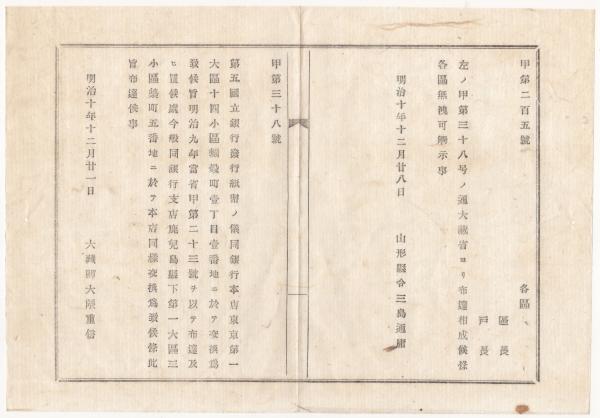 甲第二百五號
各區
區長
戸長
左ノ甲第三十八号ノ通大藏省ヨリ布達相成候條
各區無洩可觸示事
明治十年十二月廿八日
山形縣令三島通庸
甲第三十八號
第五國立銀行發行紙幣ノ儀同銀行本店東京第一
大區十四小區蠣殻町壹丁目壹番地ニ於テ交換爲
致候旨明治九年當省甲第二十三號ヲ以テ布達及
ヒ置候處今般同銀行支店鹿兒島縣下第一大區三
小區築町五番地ニ於テ本店同樣交換爲致候條此
旨布達候事
明治十年十二月廿一日
大藏卿大隈重信